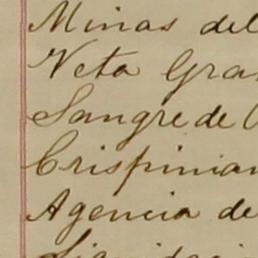 Minas del
Veta Gran
Sangre de
Crispinian
Agencia de